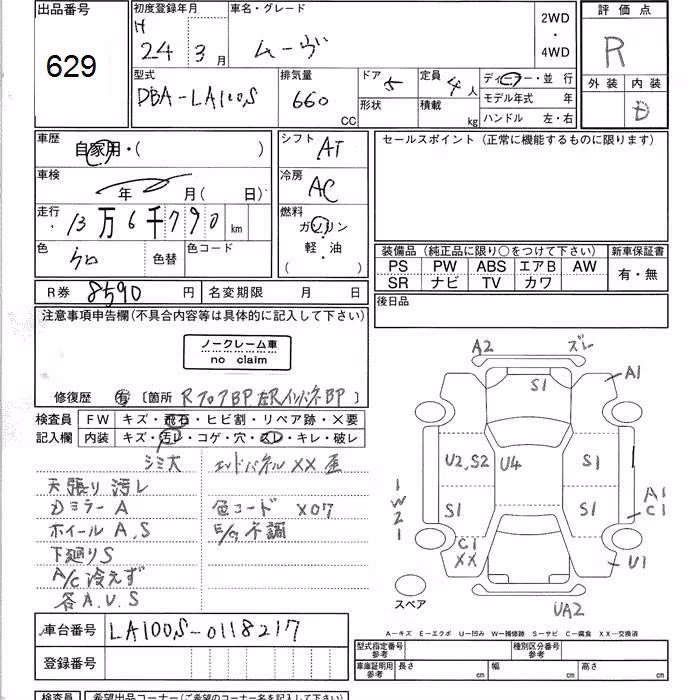 出品番号
629
初度登録年月
H
24年 3月
車名・グレード
ムーヴ
2WD
・
4WD
評価点
R
外装 内装
D
型式
DBA-LA100S
排気量
660 CC
ドア 5
形状
定員 4人
積載 kg
ディーラー・並行
モデル年式 年
ハンドル 左・右
車歴
自家用・( )
シフト AT
セールスポイント(正常に機能するものに限ります)
車検
年 月( 日)
冷房 AC
走行
13万6千790 km
燃料
ガソリン
軽・油
( )
色
色替
色コード
装備品(純正品に限り○をつけて下さい)
新車保証書
PS PW ABS エアB AW
SR ナビ TV カワ
有・無
R券 8590円
名変期限 月 日
後日品
注意事項申告欄(不具合内容等は具体的に記入して下さい)
ノークレーム車
no claim
修復歴 有 〔箇所 RフロアBP 左RインパネBP 〕
検査員 FW キズ・飛石・ヒビ割・リペア跡・×要
記入欄 内装 キズ・汚レ・コゲ・穴・スレ・キレ・破レ
シミ大 エンドパネルXX 歪
天張り 汚レ
Dミラー A 色コード X07
ホイール A.S E/g不調
下廻り S
A/C冷えず
各A.U.S
A2 ズレ
S1 A1
U2,S2 U4 S1
S1 S1
A1
C1
W2
C1
XX
U1
UA2
スペア
A-キズ E-エクボ U-凹み W-補修跡 S-サビ C-腐食 XX-交換済
車台番号 LA100S-0118217
登録番号
型式指定番号
参考
種別区分番号
参考
車庫証明用
参考
長さ cm 幅 cm 高さ cm
検査員 希望出品コーナー(ご希望のコーナー名を記入して下さい)